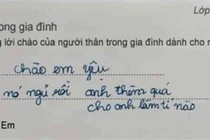 Lớp
ong gia đình
g lời chào của người thân trong gia đình dành cho r
chào em yêu
nó ngủ rồi anh thèm quá
cho anh làm tí nào
Em